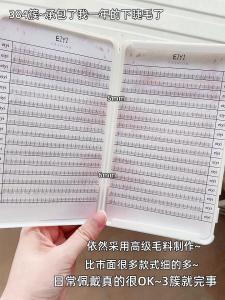 384簇~承包了我一年的下睫毛了
EIYI
EIYI
5mm
6mm
依然采用高级毛料制作~
比市面很多款式细的多~
日常佩戴真的很OK~3簇就完事